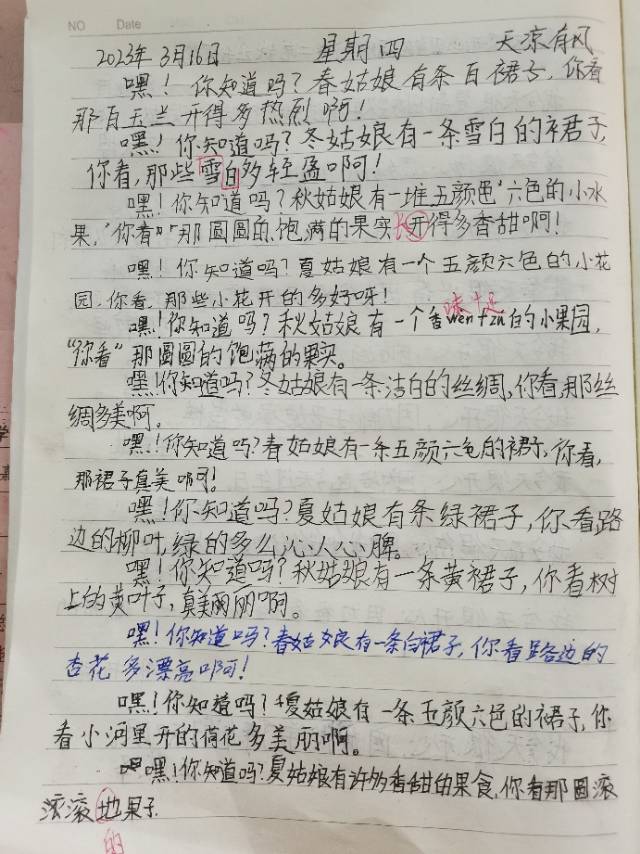 NO Date
2023年3月16日 星期四 天凉有风
嘿！你知道吗？春姑娘有条白裙子，你看
那白玉兰开得多热烈啊！
嘿！你知道吗？冬姑娘有一条雪白的裙子，
你看，那些雪白多轻盈啊！
嘿！你知道吗？秋姑娘有一堆五颜六色的小水
果，“你看”那圆圆的，饱满的果实长开得多香甜啊！
嘿！你知道吗？夏姑娘有一个五颜六色的小花
园，你看，那些小花开的多好呀！
味十足
嘿！你知道吗？秋姑娘有一个香wen+zu的小果园，
“你看”那圆圆的饱满的果实。
嘿！你知道吗？冬姑娘有一条洁白的丝绸，你看，那丝
绸多美啊。
嘿！你知道吗？春姑娘有一条五颜六色的裙子，你看，
那裙子真美啊！
嘿！你知道吗？夏姑娘有条绿裙子，你看路
边的柳叶，绿的多么沁人心脾。
嘿！你知道吗？秋姑娘有一条黄裙子，你看树
上的黄叶子，真美丽啊。
嘿！你知道吗？春姑娘有一条白裙子，你看路边的
杏花多漂亮啊！
嘿！你知道吗？夏姑娘有一条五颜六色的裙子，你
看小河里开的荷花多美丽啊。
嘿！你知道吗？夏姑娘有许多香甜的果食，你看那圆滚
滚滚地果子
的